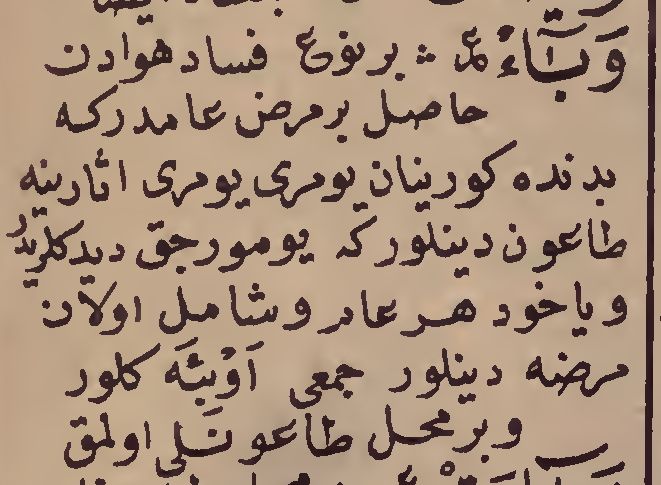 وَبَآءْ ع : بر نوع فساد هوادن
حاصل بر مرض عامدركه
بدنده كورينان يومرى يومرى اثارينه
طاعون دينلوركه يومورجق ديدكلريدر
وياخود هر عام وشامل اولان
مرضه دينلور جمعى اَوْبِئَه كلور
وبر محل طاعونَلى اولمق